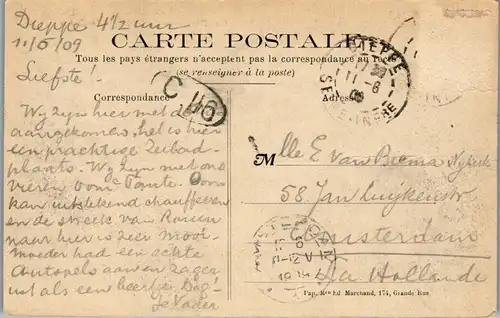 Dieppe 4 1/2 uur
11/6/09
CARTE POSTALE
Tous les pays étrangers n'acceptent pas la correspondance au recto
(se renseigner à la poste)
Liefste!
Correspondance
Adresse
C 116
DIEPPE
11 - 6
SEINE-INFRE
Wij zijn hier met de
aangekomen, het is hier
een prachtige Zeebad-
plaats. Wij zijn met ons
vieren oom de Comte. Oom
kan uitstekend chauffeeren
en de streek van Rouen
naar hier is zeer mooi
moeder had een echte
Autopels aan en zag er
uit als een beertje. Dag
je Vader
Mlle E van Biema
58. Jan Luykenstr
Amsterdam
La Hollande
Pap. Mon Ed Marchand, 174, Grande Rue